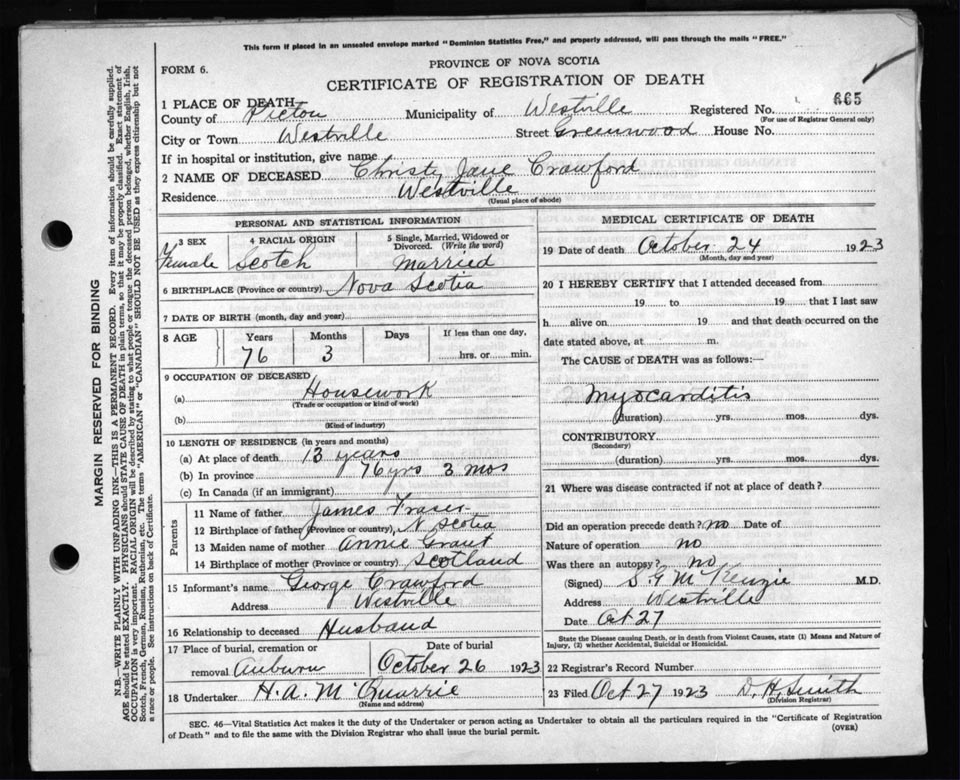 This form if placed in an unsealed envelope marked "Dominion Statistics Free," and properly addressed, will pass through the mails "FREE."
PROVINCE OF NOVA SCOTIA
FORM 6.
CERTIFICATE OF REGISTRATION OF DEATH
1 PLACE OF DEATH
County of Pictou Municipality of Westville Registered No. 665
(For use of Registrar General only)
City or Town Westville Street Greenwood House No.
If in hospital or institution, give name
2 NAME OF DECEASED Christy Jane Crawford
Residence Westville
(Usual place of abode)
PERSONAL AND STATISTICAL INFORMATION
3 SEX 4 RACIAL ORIGIN 5 Single, Married, Widowed or Divorced. (Write the word)
Female Scotch Married
6 BIRTHPLACE (Province or country) Nova Scotia
7 DATE OF BIRTH (month, day and year)
8 AGE Years Months Days If less than one day,
76 3 hrs. or min.
9 OCCUPATION OF DECEASED
(a) Housework
(Trade or occupation or kind of work)
(b)
(Kind of industry)
10 LENGTH OF RESIDENCE (in years and months)
(a) At place of death 13 years
(b) In province 76 yrs 3 mos
(c) In Canada (if an immigrant)
Parents
11 Name of father James Fraser
12 Birthplace of father (Province or country) N Scotia
13 Maiden name of mother Annie Grant
14 Birthplace of mother (Province or country) Scotland
15 Informant's name George Crawford
Address Westville
16 Relationship to deceased Husband
17 Place of burial, cremation or removal Auburn Date of burial October 26 1923
18 Undertaker H. A. McQuarrie
(Name and address)
MEDICAL CERTIFICATE OF DEATH
19 Date of death October 24 1923
(Month, day and year)
20 I HEREBY CERTIFY that I attended deceased from
19 to 19 that I last saw
h alive on 19 and that death occurred on
date stated above, at m.
The CAUSE of DEATH was as follows:—
Myocarditis
(duration) yrs. mos. dys.
CONTRIBUTORY
(Secondary)
(duration) yrs. mos. dys.
21 Where was disease contracted if not at place of death?
Did an operation precede death? no Date of
Nature of operation no
Was there an autopsy? no
(Signed) S. G McKenzie M.D.
Address Westville
Date Oct 27
State the Disease causing Death, or in death from Violent Causes, state (1) Means and Nature of
Injury, (2) whether Accidental, Suicidal or Homicidal.
22 Registrar's Record Number
23 Filed Oct 27 1923 D. H. Smith
(Division Registrar)
SEC. 46—Vital Statistics Act makes it the duty of the Undertaker or person acting as Undertaker to obtain all the particulars required in the "Certificate of Registration
of Death" and to file the same with the Division Registrar who shall issue the burial permit.
(OVER)
MARGIN RESERVED FOR BINDING
N.B.—WRITE PLAINLY WITH UNFADING INK—THIS IS A PERMANENT RECORD. Every item of information should be carefully supplied.
AGE should be stated EXACTLY. PHYSICIANS should STATE CAUSE OF DEATH in plain terms, so that it may be properly classified. Exact statement of
OCCUPATION is very important. RACIAL ORIGIN will be described by stating to what people or tongue the deceased person belonged, whether English, Irish,
Scotch, French, German, Russian, Ruthenian, etc. The terms "AMERICAN" or "CANADIAN" SHOULD NOT BE USED as they express citizenship but not
a race or people. See instructions on back of Certificate.